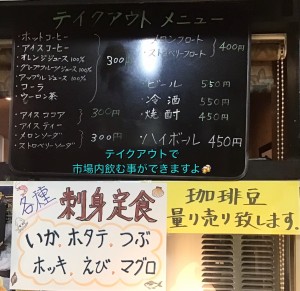 テイクアウト メニュー
・ホットコーヒー
・アイスコーヒー
・オレンジジュース 100%
・グレープフルーツジュース 100%
・アップルジュース 100%
・コーラ
・ウーロン茶
300円
・アイスココア
・アイスティー
300円
・メロンソーダ
・ストロベリーソーダ
300円
・メロンフロート
・ストロベリーフロート
400円
・ビール 550円
・冷酒 550円
・焼酎 450円
・ハイボール 450円
テイクアウトで
市場内飲む事ができますよ🍻
各種
刺身定食
いか.ホタテ.つぶ
ホッキ.えび.マグロ
珈琲豆
量り売り致します.